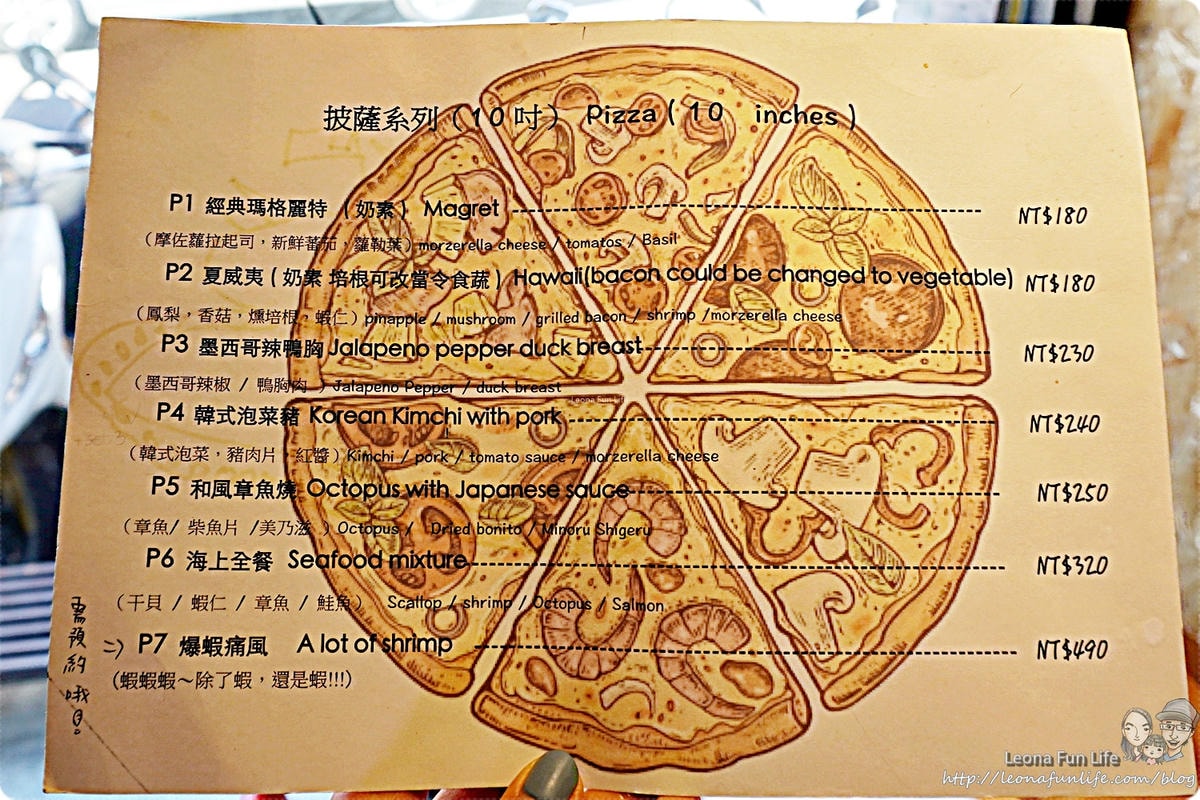 披薩系列（10吋） Pizza ( 10 inches )
P1 經典瑪格麗特 （奶素） Magret NT$180
（摩佐蘿拉起司，新鮮蕃茄，蘿勒葉）morzerella cheese / tomatos / Basil
P2 夏威夷 ( 奶素 培根可改當令食蔬 ) Hawaii(bacon could be changed to vegetable) NT$180
（鳳梨，香菇，燻培根，蝦仁）pinapple / mushroom / grilled bacon / shrimp /morzerella cheese
P3 墨西哥辣鴨胸 Jalapeno pepper duck breast NT$230
（墨西哥辣椒 / 鴨胸肉 ）Jalapeno Pepper / duck breast
Leona Fun Life
P4 韓式泡菜豬 Korean Kimchi with pork NT$240
（韓式泡菜，豬肉片，紅醬）Kimchi / pork / tomato sauce / morzerella cheese
P5 和風章魚燒 Octopus with Japanese sauce NT$250
（章魚/ 柴魚片 /美乃滋 ）Octopus / Dried bonito / Minoru Shigeru
P6 海上全餐 Seafood mixture NT$320
（干貝 / 蝦仁 / 章魚 / 鮭魚） Scallop / shrimp / Octopus / Salmon
=> P7 爆蝦痛風 A lot of shrimp NT$490
（蝦蝦蝦～除了蝦，還是蝦!!!）
需預約哦!
Leona Fun Life
http://leonafunlife.com/blog